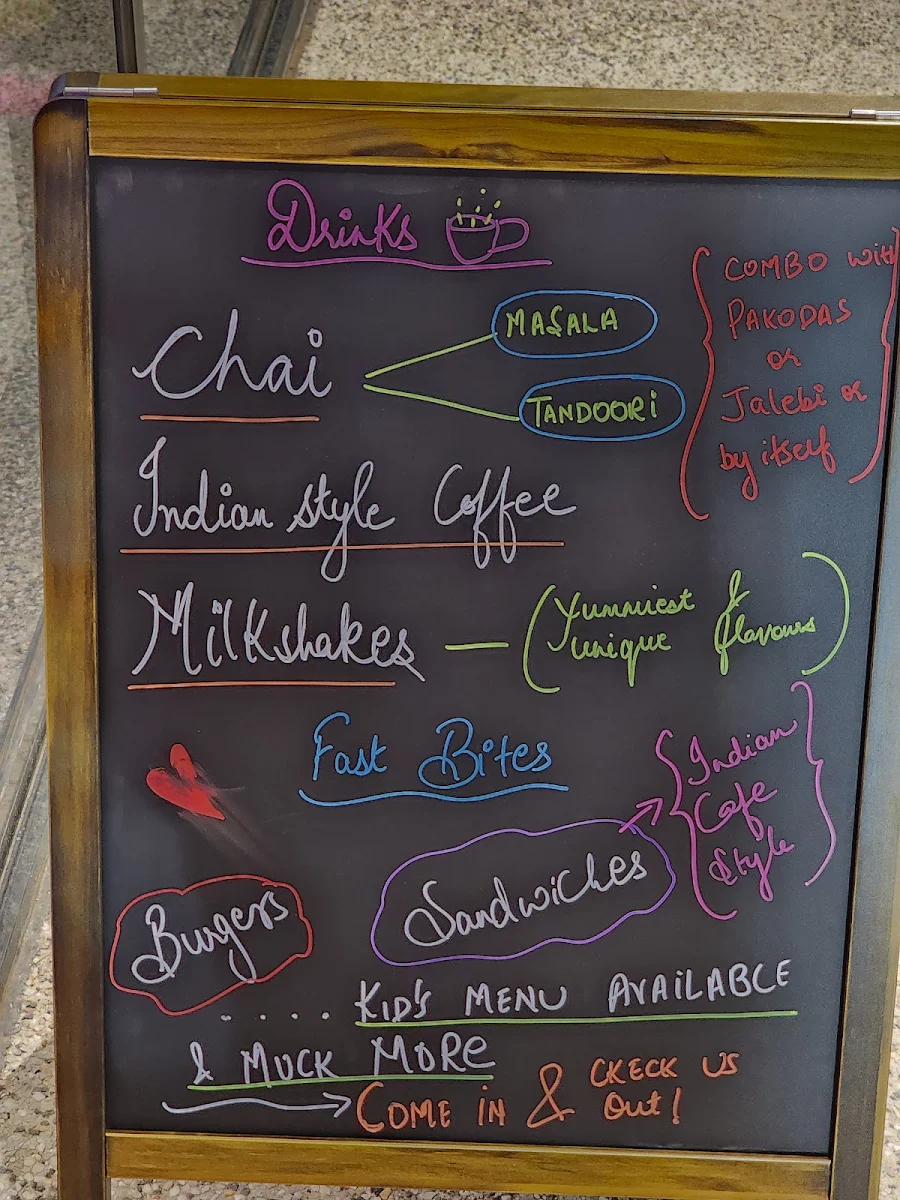 Drinks
Chai
MASALA
TANDOORi
COMBO with
PAKODAS
or
Jalebi or
by itself
Indian style Coffee
Milkshakes — (Yummiest
unique flavours)
Fast Bites
Burgers
Sandwiches
Indian
Cafe
Style
.... KiD's MENU AVAiLABLE
& MUCK MORE
COME iN & CKECK US
Out!